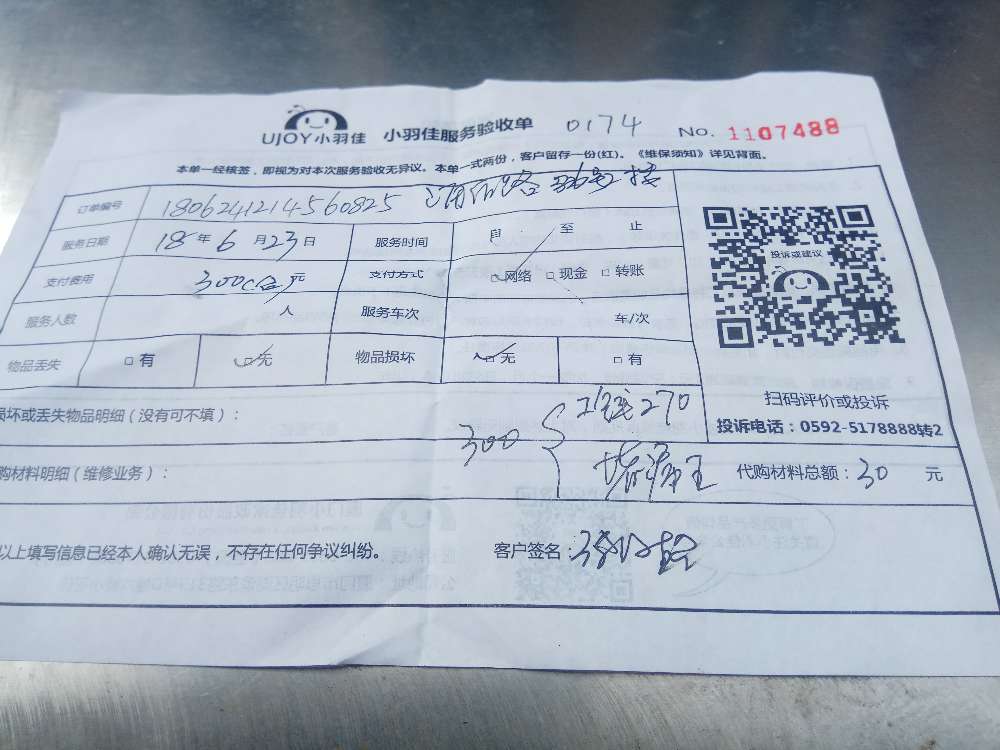 UJOY小羽佳 小羽佳服务验收单 0174 No. 1107488
本单一经核签，即视为对本次服务验收无异议。本单一式两份，客户留存一份(红)。《维保须知》详见背面。
订单编号 1806241214560825
服务日期 18年6月23日 服务时间 自 至 止
支付费用 300 元 支付方式 □网络 □现金 □转账
服务人数 人 服务车次 车/次
物品丢失 □有 □无 物品损坏 □无 □有
投诉或建议
扫码评价或投诉
投诉电话：0592-5178888转2
损坏或丢失物品明细（没有可不填）：
300 工钱270
堵漏王
购材料明细（维修业务）： 代购材料总额：30 元
以上填写信息已经本人确认无误，不存在任何争议纠纷。 客户签名：